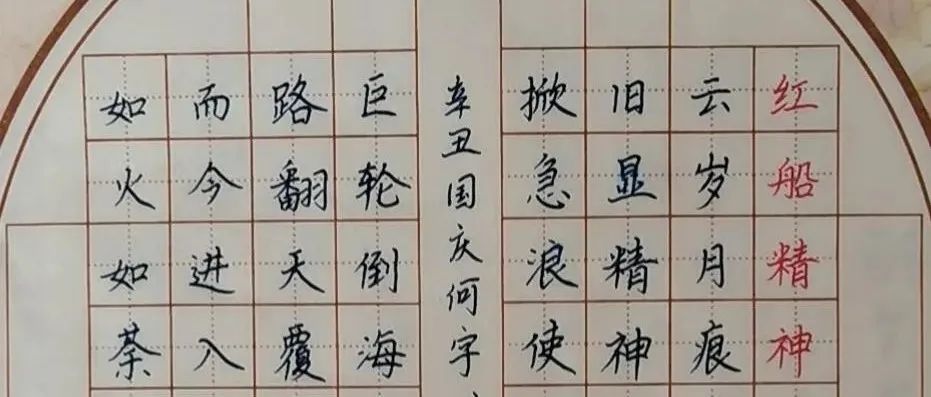 红船精神
云岁月痕
旧显精神
掀急浪使
辛丑国庆何字
巨轮倒海
路翻天覆
而今进入
如火如荼